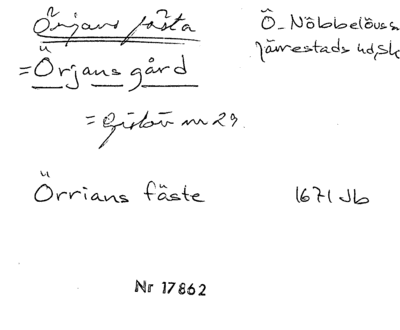 Örjans fästa Ö. Nöbbelövs sn
= Örjans gård Järrestads hd, Sk
= Gislöv nr 29
Örrians fäste 1671 Jb
Nr 17862